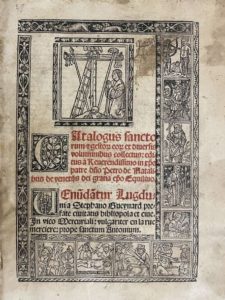 Catalogus sancto
rum & gestorum eorum ex diversis
voluminibus collectus: editus
a Reverendissimo in christo
patre domino Petro de Natali
bus de venetiis dei gratia episcopo Equilino
Venundantur Lugdu
ni a Stephano Gueynard pre
fate civitatis bibliopola et cive.
In vico Mercuriali: vulgariter en la rue
merciere: prope sanctum Antonium.